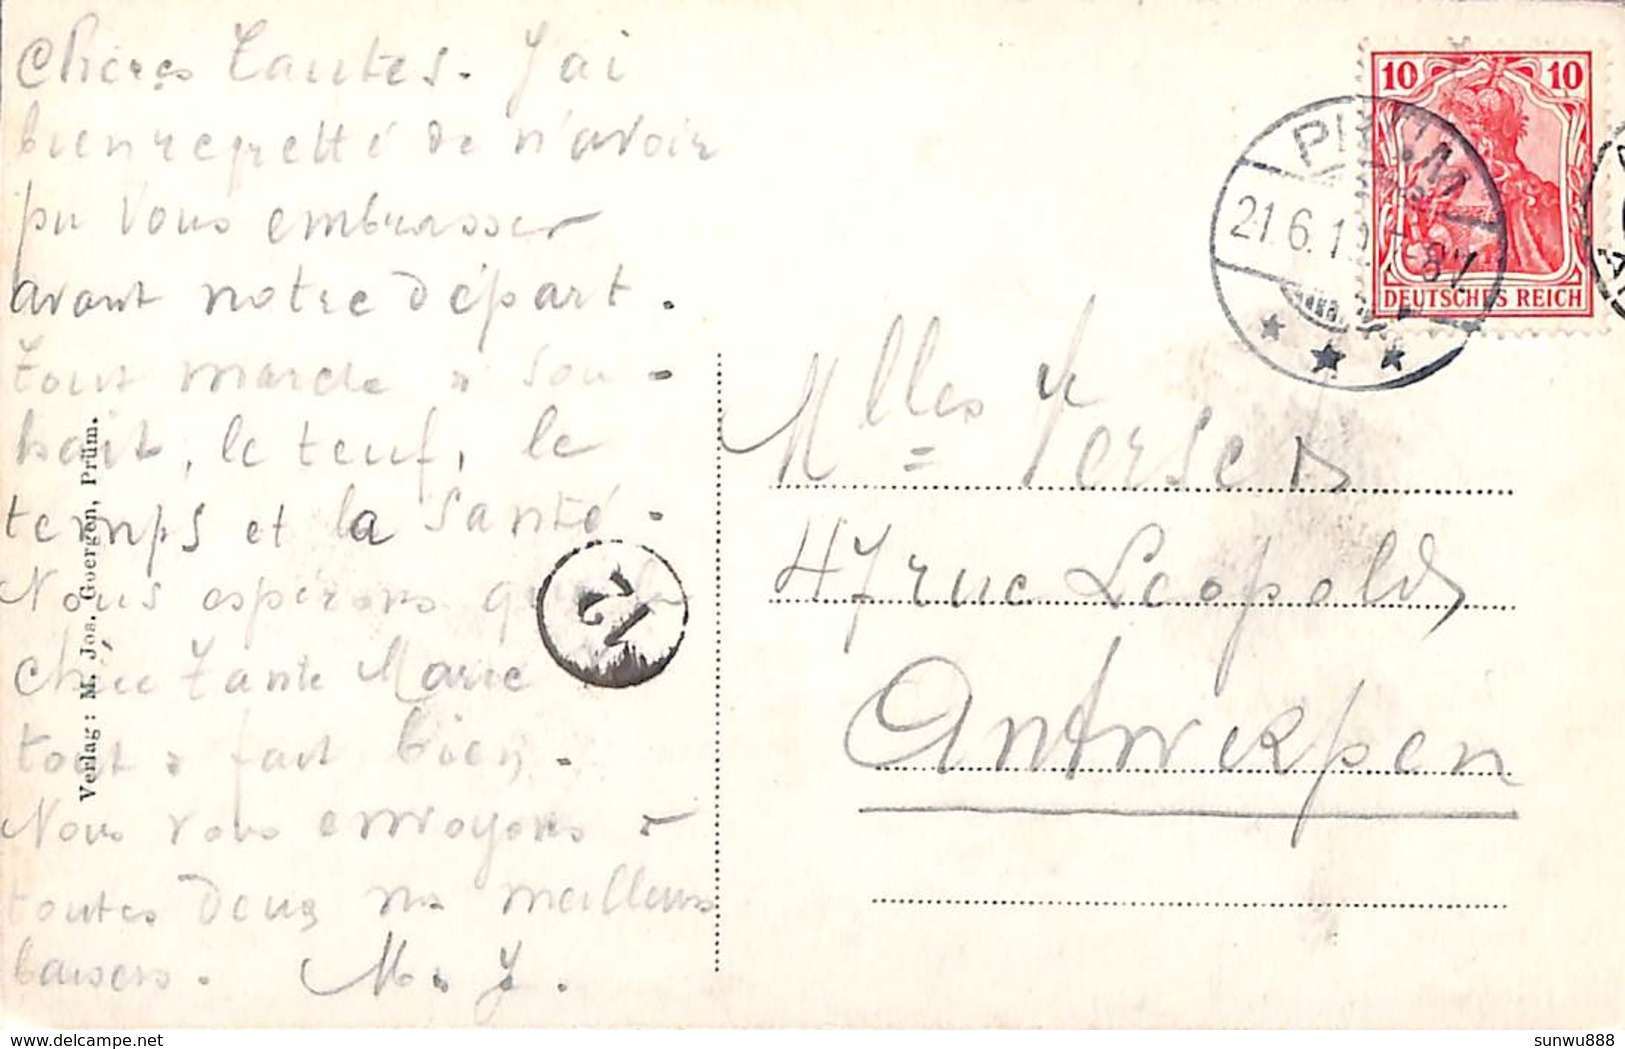 Chères Tantes. J'ai
bien regretté de n'avoir
pu vous embrasser
avant notre départ.
Tout marche à sou-
hait, le teuf, le
temps et la santé.
Nous espérons que la
chère Tante Marie
tout à fait bien.
Nous vous envoyons à
toutes deux nos meilleurs
baisers. M. J.
Verlag: M. Jos. Goergen, Prüm.
12
10 10
DEUTSCHES REICH
PRÜM
21.6.1
Mlles
47 rue Leopold
Antwerpen
delcampe.net
sunwu888